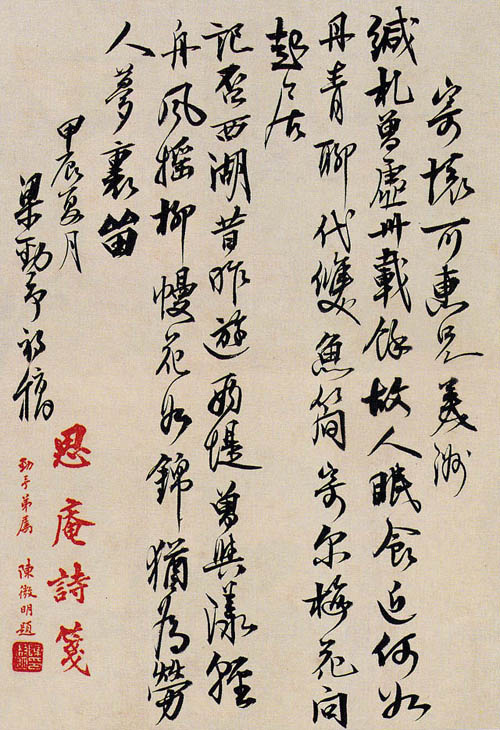 寄懷可惠兄美洲
緘札曾虛卅載餘故人眠食近何如
丹青聊代雙魚簡寄尔梅花向
起居
記否西湖昔昨遊兩堤曾與漾輕
舟風搖柳幔花如錦猶為勞
人夢裏留
甲辰夏月
梁勁予初稿
思庵詩箋
勁予弟屬 陳微明題